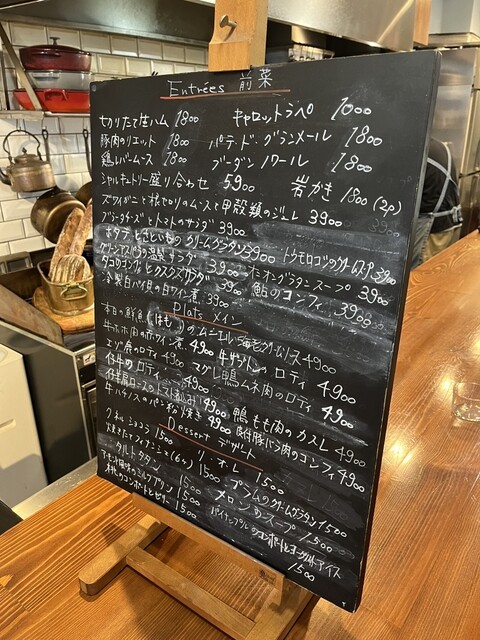 Entrées 前菜
切りたて生ハム 1800 キャロットラペ 1000
豚肉のリエット 1800 パテ・ド・グランメール 1800
鶏レバームース 1800 ブーダンノワール 1800
シャルキュトリー盛り合わせ 5900 岩かき 1800 (2p)
ズワイガニと根セロリのムースと甲殻類のジュレ 3900
ブラータチーズとトマトのサラダ 3900
ポタプとさといもの クリームグラタン 3900 トウモロコシの冷製スープ 3900
サラダ 3900 オニオングラタンスープ 3900
タコのコンフィとクスクスサラダ 3900 鮎のコンフィ 3900
冷製白バイ貝の白ワイン煮 3900
Plats メイン
本日の鮮魚(はも)のムニエル 海老クリームソース 4900
牛ホホ肉の赤ワイン煮 4900 牛サガリのロティ 4900
エゾ鹿のロティ 4900 マグレ鴨ムネ肉のロティ 4900
仔牛のロティ 4900 鴨もも肉のカスレ 4900
4900 骨付豚バラ肉のコンフィ 4900
牛ハチノスのパン粉焼き 4900
Dessert デザート
クネルショコラ 1500 リ・オ・レ 1500
焼きたてフィナンシェ(6ヶ) 1500 プラムのクリームグラタン 1500
タルトタタン 1500 メロンのスープ 1500
ミルクプリン 1500 パイナップルのコンポートとヨーグルトアイス 1500
桃のコンポートとゼリー 1500